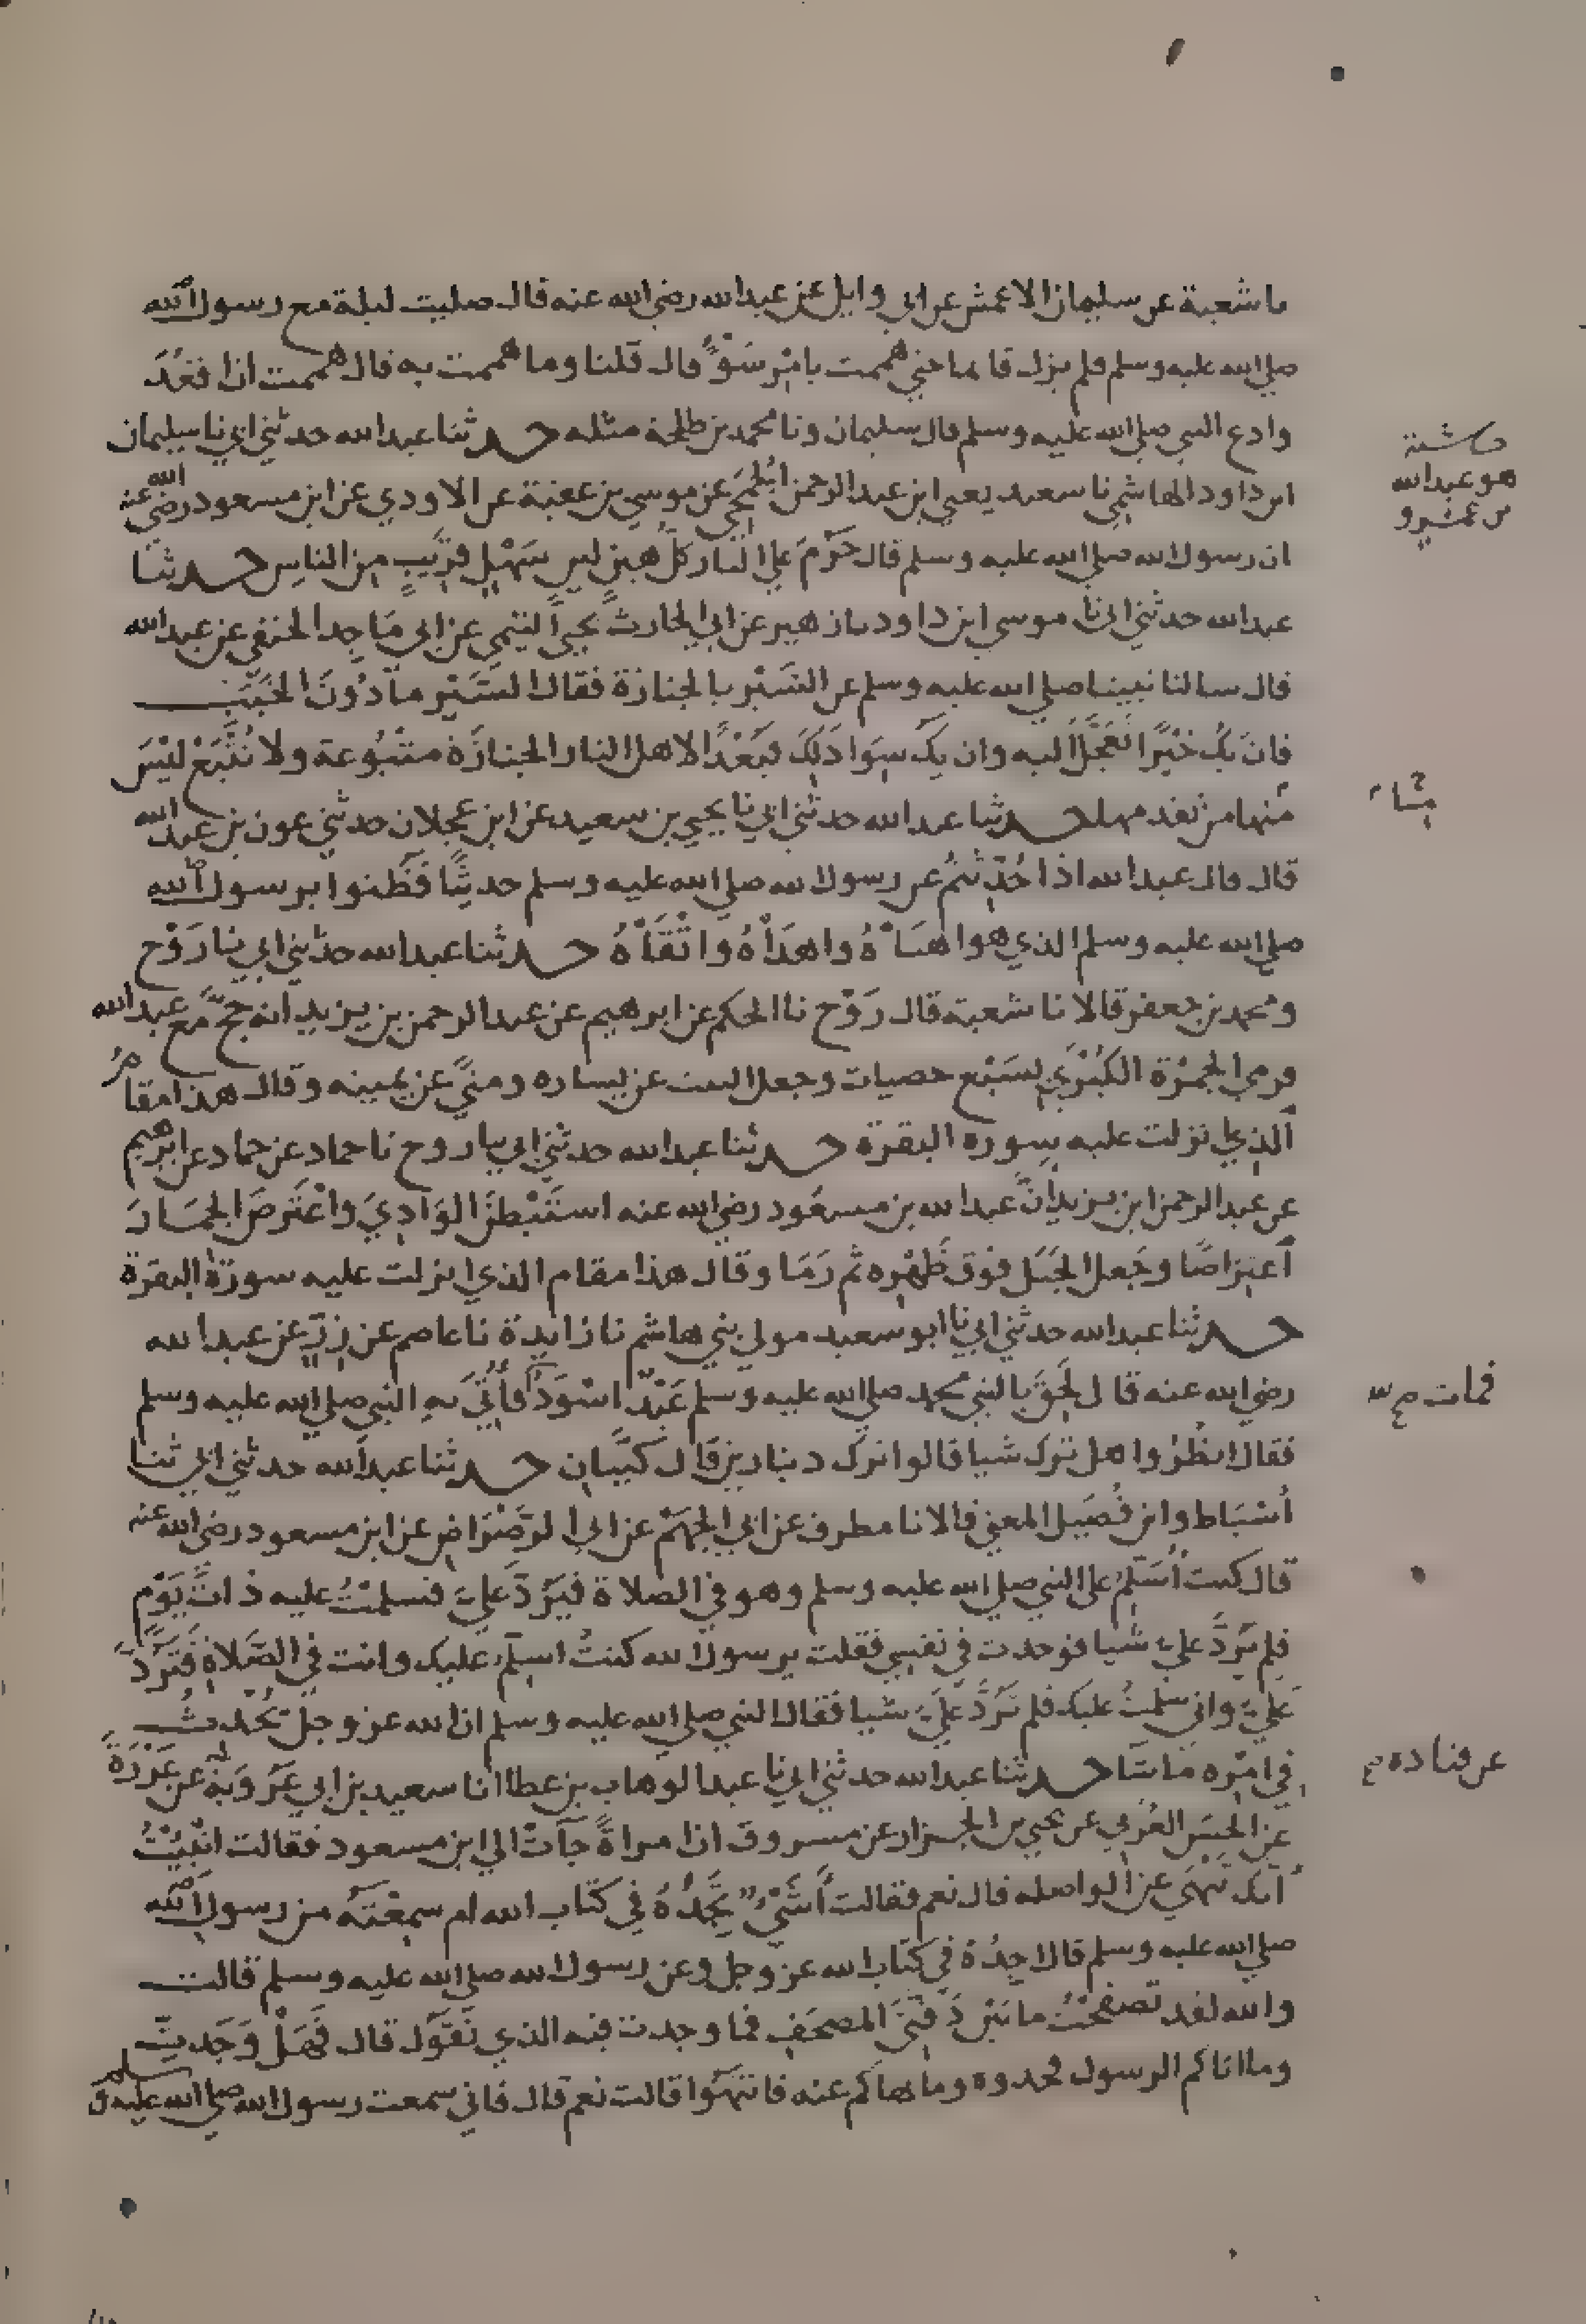 نا شعبة عن سليمان الاعمش عن ابي وايل عن عبد الله رضي الله عنه قال صليت ليلة مع رسول الله
صلى الله عليه وسلم فلم يزل قائما حتى هممت بامر سوء قال قلنا وما هممت به قال هممت ان اقعد
وادع النبي صلى الله عليه وسلم قال سليمان ونا محمد بن طلحة مثله حدثنا عبد الله حدثني ابي نا سليمان
ابن داود الهاشمي نا سعيد يعني ابن عبد الرحمن الجمحي عن موسى بن عقبة عن الاودي عن ابن مسعود رضي الله عنه
حاشية
هو عبد الله
بن عمرو
ان رسول الله صلى الله عليه وسلم قال حرم على النار كل هين لين سهل قريب من الناس حدثنا
عبد الله حدثني ابي نا موسى ابن داود نا زهير عن ابي الحارث يحيى التيمي عن ابي ماجد الحنفي عن عبد الله
قال سالنا نبينا صلى الله عليه وسلم عن السير بالجنازة فقال السير ما دون الخبب
فان يك خيرا تعجل اليه وان يك سوا ذلك فبعدا لاهل النار الجنازة متبوعة ولا تتبع ليس
منها من تقدمها حدثنا عبد الله حدثني ابي نا يحيى بن سعيد عن ابن عجلان حدثني عون بن عبد الله
قال قال عبد الله اذا حدثتم عن رسول الله صلى الله عليه وسلم حديثا فظنوا برسول الله
صلى الله عليه وسلم الذي هو اهناه واهداه واتقاه حدثنا عبد الله حدثني ابي نا روح
ومحمد بن جعفر قالا نا شعبة قال روح نا الحكم عن ابرهيم عن عبد الرحمن بن يزيد انه حج مع عبد الله
فرمى الجمرة الكبرى بسبع حصيات وجعل البيت عن يساره ومنى عن يمينه وقال هذا مقام
الذي نزلت عليه سورة البقرة حدثنا عبد الله حدثني ابي نا روح نا حماد عن حماد عن ابرهيم
عن عبد الرحمن ابن يزيد ان عبد الله بن مسعود رضي الله عنه استبطن الوادي واعترض الجمار
اعتراضا وجعل الجبل فوق ظهره ثم رما وقال هذا مقام الذي انزلت عليه سورة البقرة
حدثنا عبد الله حدثني ابي نا ابو سعيد مولى بني هاشم نا زايدة نا عاصم عن زر عن عبد الله
رضي الله عنه قال لحق بالنبي محمد صلى الله عليه وسلم عبد اسود فأتي به النبي صلى الله عليه وسلم
فمات صح
فقال انظروا هل ترك شيا قالوا ترك دينارين قال كيتان حدثنا عبد الله حدثني ابي ثنا
أسباط وابن فضيل المعنى قالا نا مطرف عن ابي الجهم عن ابي الرضراض عن ابن مسعود رضي الله عنه
قال كنت أسلم على النبي صلى الله عليه وسلم وهو في الصلاة فيرد علي فسلمت عليه ذات يوم
فلم يرد علي شيا فوجدت في نفسي فقلت يرسول الله كنت اسلم عليك وانت في الصلاة فترد
علي واني سلمت عليك فلم ترد علي شيا فقال النبي صلى الله عليه وسلم ان الله عز وجل يحدث
في امره ما شا حدثنا عبد الله حدثني ابي نا عبد الوهاب بن عطا انا سعيد بن ابي عروبة عن عزرة
عن قتادة صح
عن الحسن العرني عن يحيى بن الجزار عن مسروق ان امراة جآت الى ابن مسعود فقالت انبئت
انك تنهى عن الواصله قال نعم فقالت أشيء تجده في كتاب الله ام سمعته من رسول الله
صلى الله عليه وسلم قال اجده في كتاب الله عز وجل وعن رسول الله صلى الله عليه وسلم قالت
والله لقد تصفحت ما بين دفتي المصحف فما وجدت فيه الذي تقول قال فهل وجدت
وما اتاكم الرسول فخدوه وما نهاكم عنه فانتهوا قالت نعم قال فاني سمعت رسول الله صلى الله عليه وسلم